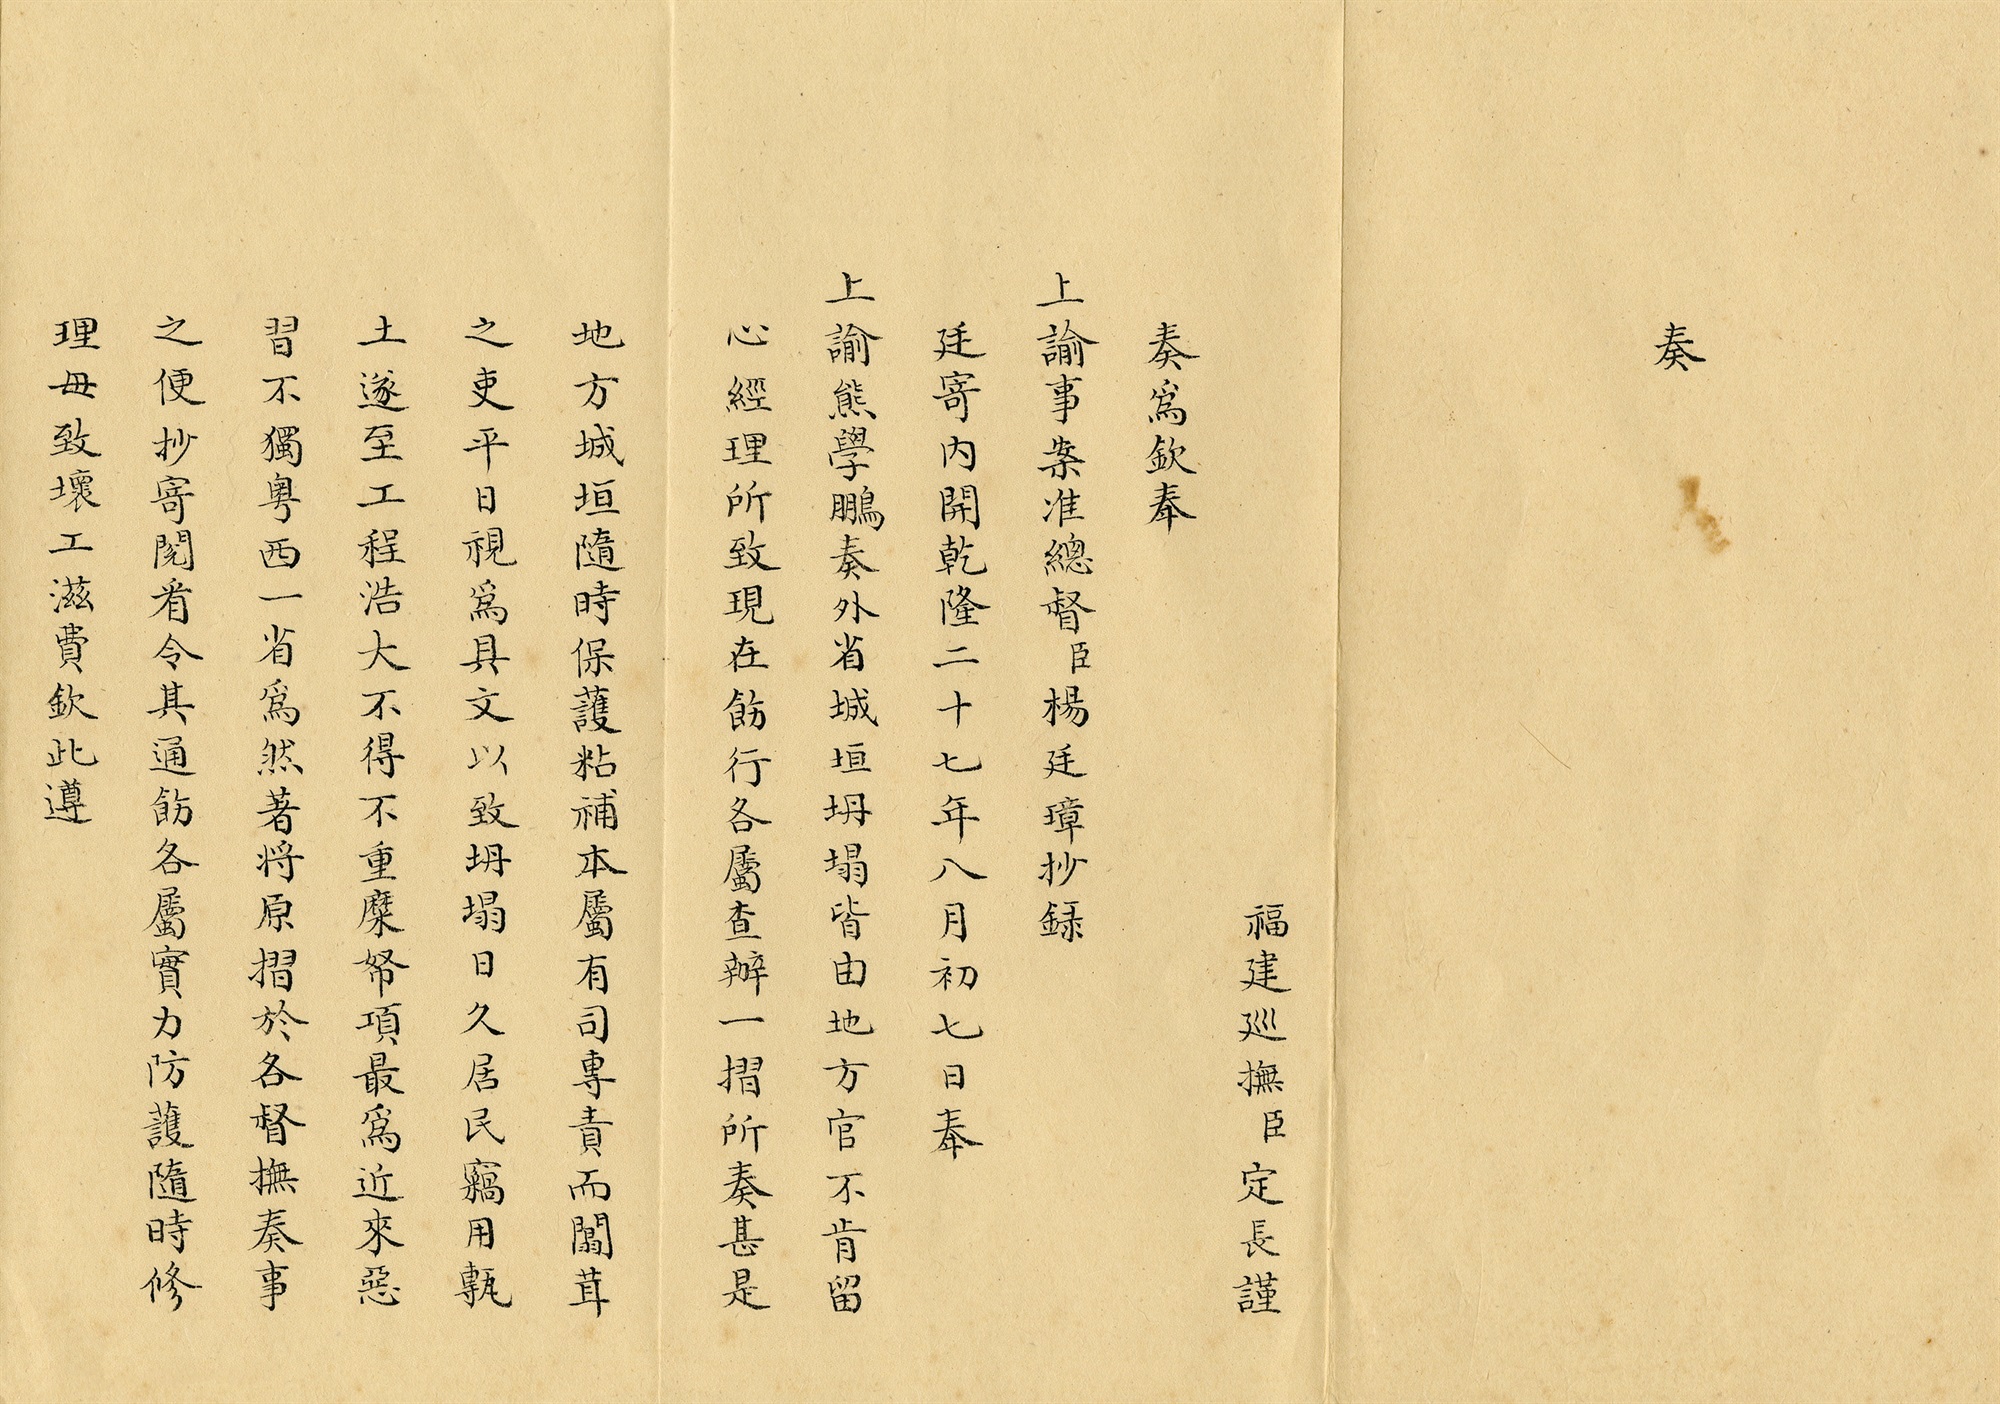 奏
福建巡撫臣定長謹
奏爲欽奉
上諭事案准總督臣楊廷璋抄録
廷寄内開乾隆二十七年八月初七日奉
上諭熊學鵬奏外省城垣坍塌皆由地方官不肯留
心經理所致現在飭行各屬查辦一摺所奏甚是
地方城垣隨時保護粘補本屬有司專責而闒茸
之吏平日視爲具文以致坍塌日久居民竊用甎
土遂至工程浩大不得不重糜帑項最爲近來惡
習不獨粤西一省爲然著将原摺於各督撫奏事
之便抄寄閱看令其通飭各屬實力防護隨時修
理毋致壞工滋費欽此遵